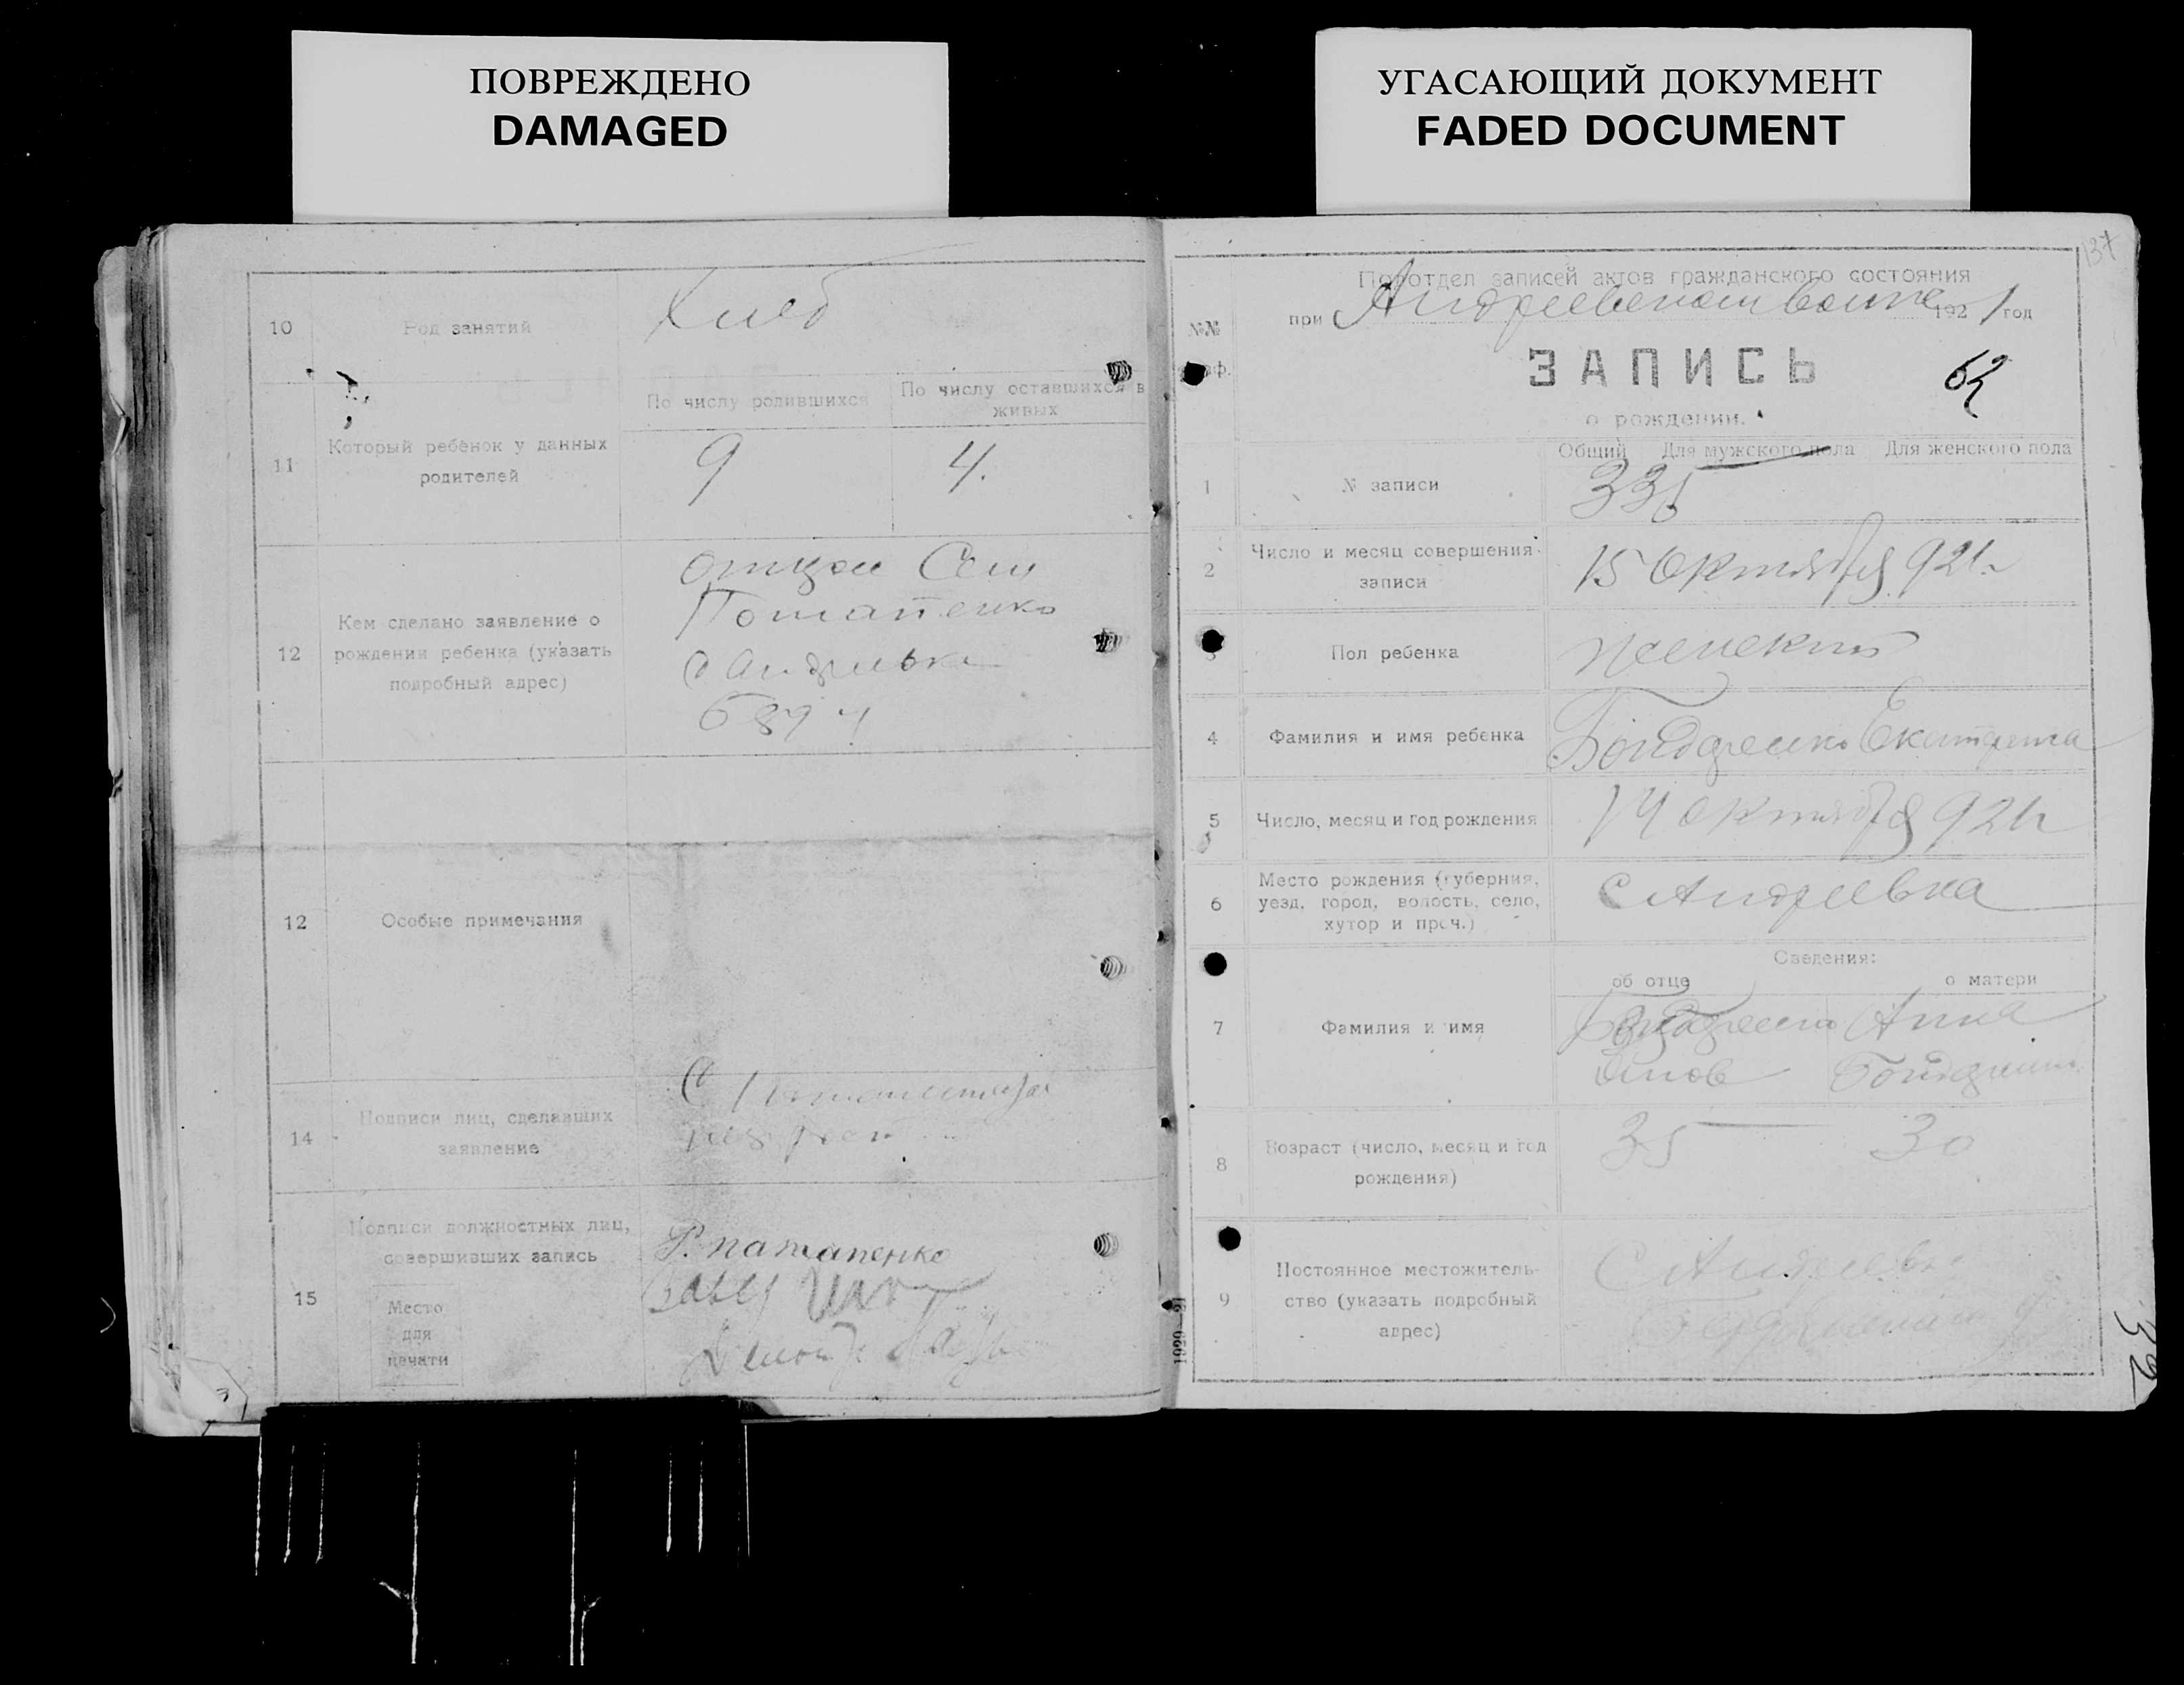 ПОВРЕЖДЕНО
DAMAGED
УГАСАЮЩИЙ ДОКУМЕНТ
FADED DOCUMENT
10 Род занятий Хлеб
По числу родившихся По числу оставшихся в живых
11 Который ребенок у данных родителей 9 4.
12 Кем сделано заявление о рождении ребенка (указать подробный адрес)
отцом Сем
Потапенко
с Андреевка
12 Особые примечания
14 Подписи лиц, сделавших заявление
15 Подписи должностных лиц, совершивших запись
Р. патапенко
Место
для
печати
137
Подотдел записей актов гражданского состояния
№№ при Андреевском 1921 год
ЗАПИСЬ
о рождении.
Общий Для мужского пола Для женского пола
1 № записи 335
2 Число и месяц совершения записи 15 Октября 921 г
Пол ребенка женский
4 Фамилия и имя ребенка Бондаренко Екатерина
5 Число, месяц и год рождения 14 октября 921 г
6 Место рождения (губерния, уезд, город, волость, село, хутор и проч.) с Андреевка
Сведения:
об отце о матери
7 Фамилия и имя
Бондаренко Анна
Бондаренко
8 Возраст (число, месяц и год рождения) 35 30
9 Постоянное местожительство (указать подробный адрес)
с Андреевка
1920—21
32